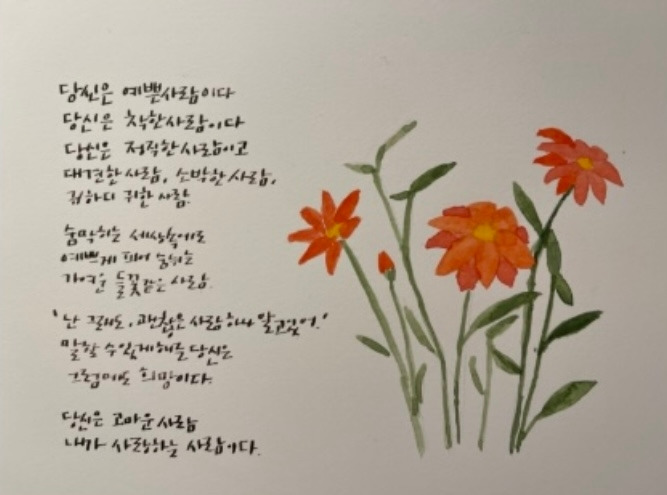 당신은 예쁜사람이다
당신은 착한사람이다
당신은 정직한사람이고
대견한 사람, 소박한 사람,
귀하디 귀한 사람.
숨막히는 세상속에도
예쁘게 피어 숨쉬는
가여운 들꽃같은 사람.
'난 그래도, 괜찮은 사람하나 알고있어.'
말할 수있게해줄 당신은
그럼에도 희망이다.
당신은 고마운 사람
내가 사랑하는 사람이다.